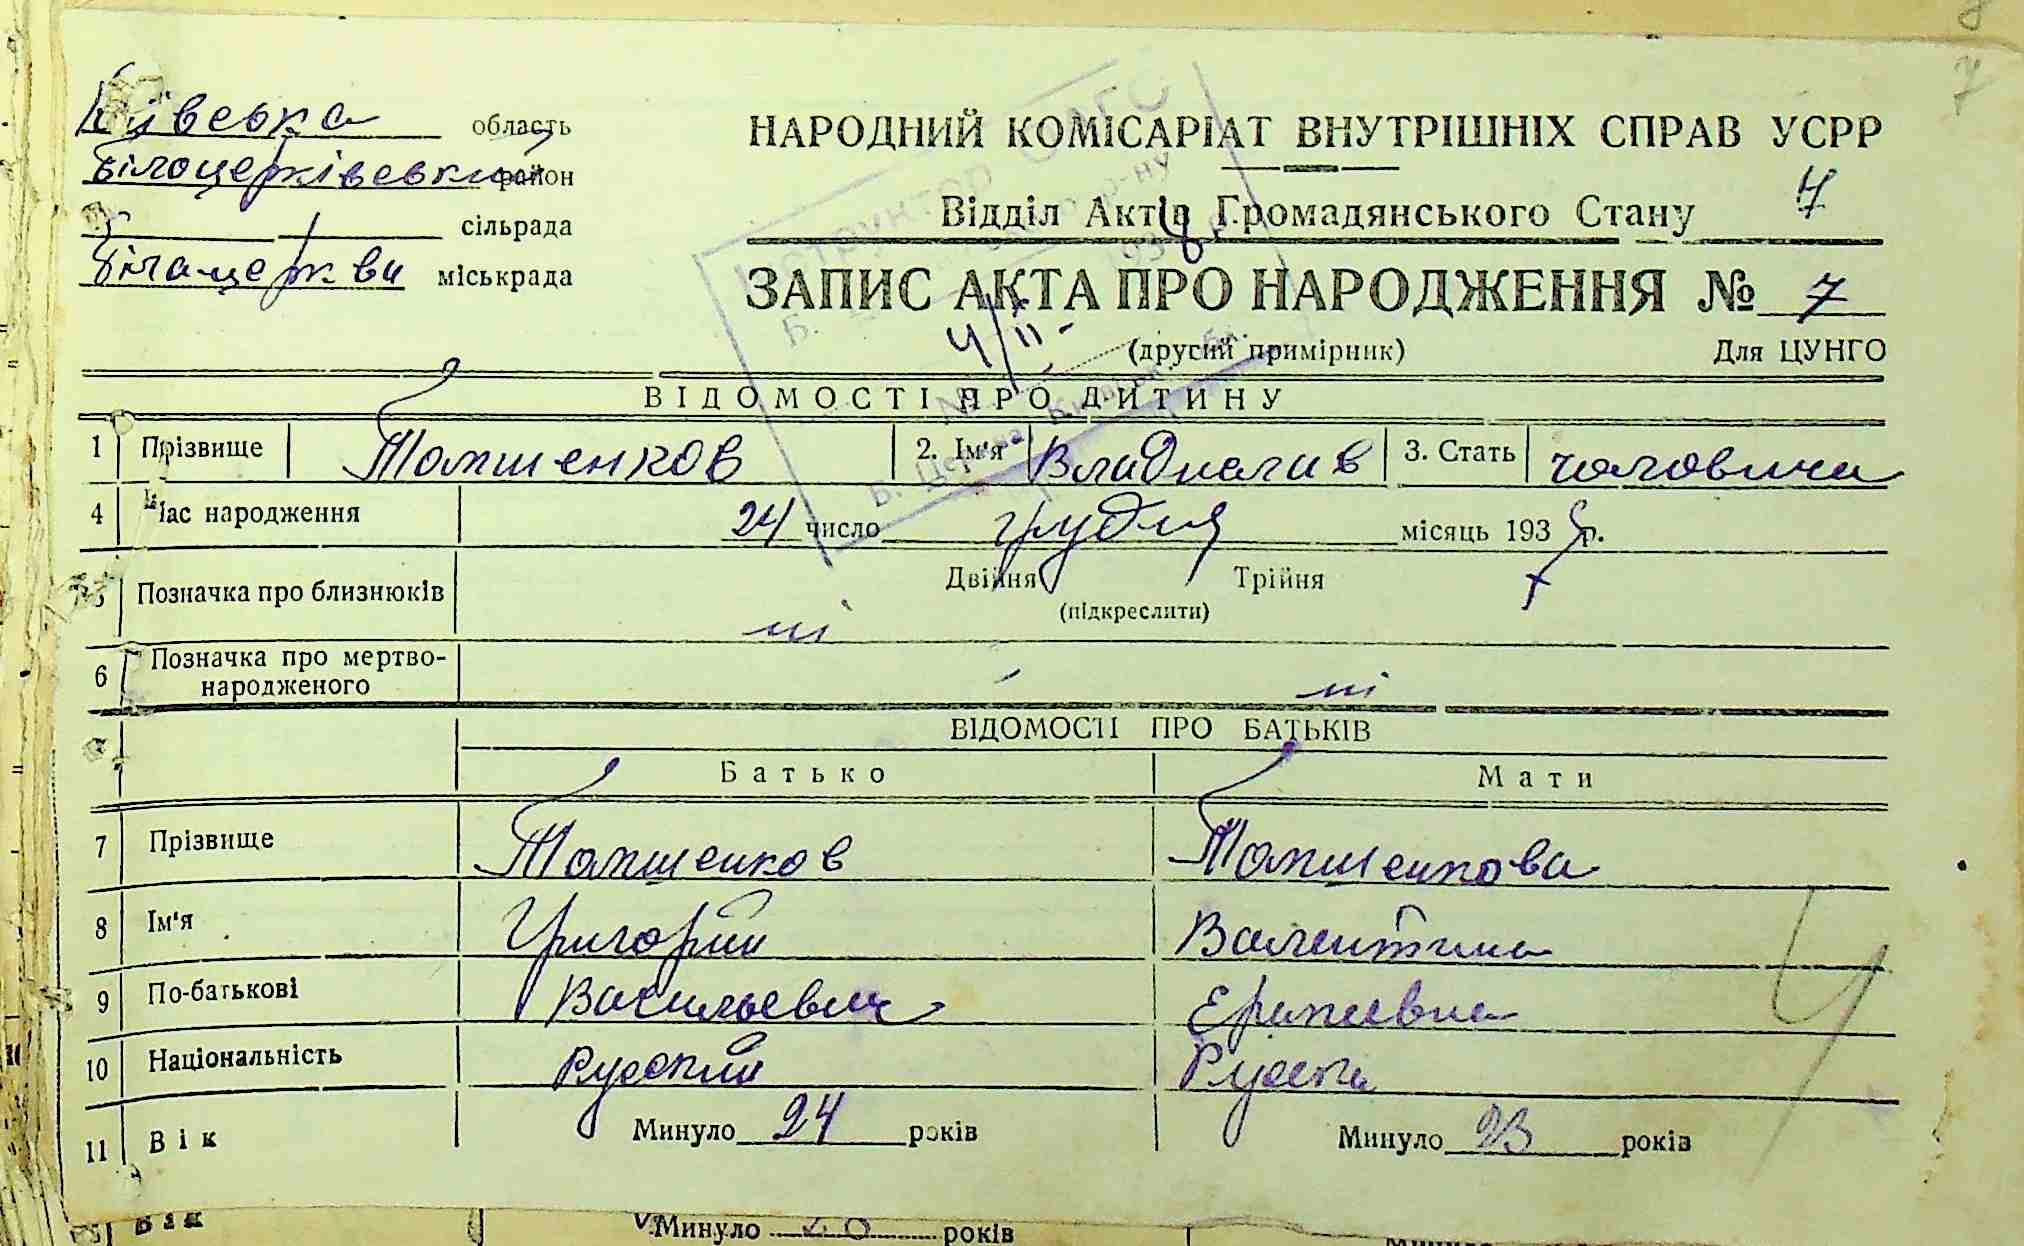 Київська область
Білоцерківський район
сільрада
Білацеркви міськрада
НАРОДНИЙ КОМІСАРІАТ ВНУТРІШНІХ СПРАВ УСРР
Відділ Актів Громадянського Стану 7
ЗАПИС АКТА ПРО НАРОДЖЕННЯ № 7
(другий примірник) Для ЦУНГО
ВІДОМОСТІ ПРО ДИТИНУ
1 Прізвище 2. Ім'я 3. Стать
4 Час народження 24 число грудня місяць 193 р.
5 Позначка про близнюків Двійня Трійня
(підкреслити)
ні
6 Позначка про мертво-
народженого ні
ВІДОМОСТІ ПРО БАТЬКІВ
Батько Мати
7 Прізвище
8 Ім'я Григорий Валентина
9 По-батькові Васильевич
10 Національність Русский Руска
11 Вік Минуло 24 років Минуло 23 років
Вік Минуло 20 років